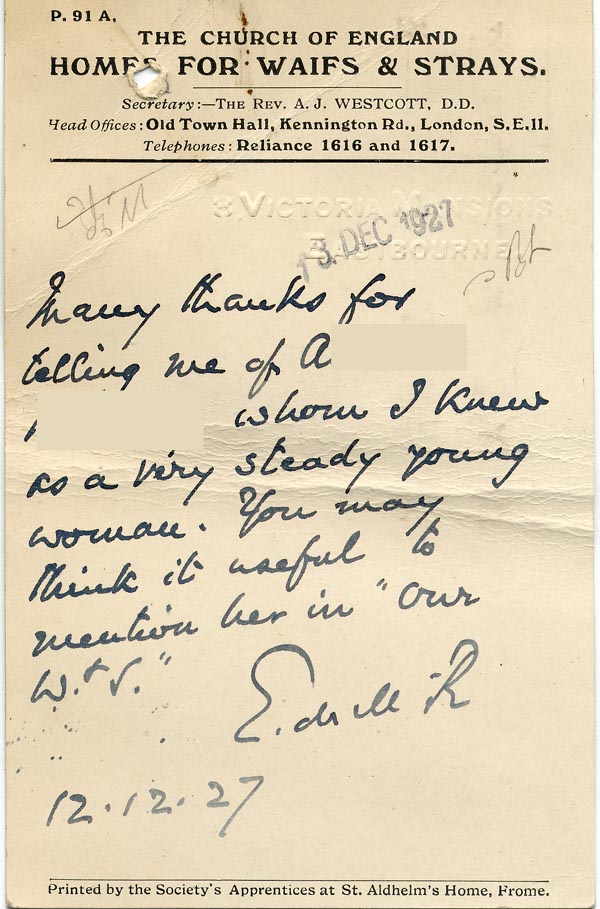 P. 91 A.
THE CHURCH OF ENGLAND
HOMES FOR WAIFS & STRAYS.
Secretary:—THE REV. A. J. WESTCOTT, D.D.
Head Offices: Old Town Hall, Kennington Rd., London, S.E.11.
Telephones: Reliance 1616 and 1617.
8, VICTORIA MANSIONS
EASTBOURNE
13. DEC 1927
Many thanks for
telling me of A
whom I knew
as a very steady young
woman. You may
think it useful to
mention her in "Our
W. & S."
E. de M. R
12.12.27
Printed by the Society's Apprentices at St. Aldhelm's Home, Frome.